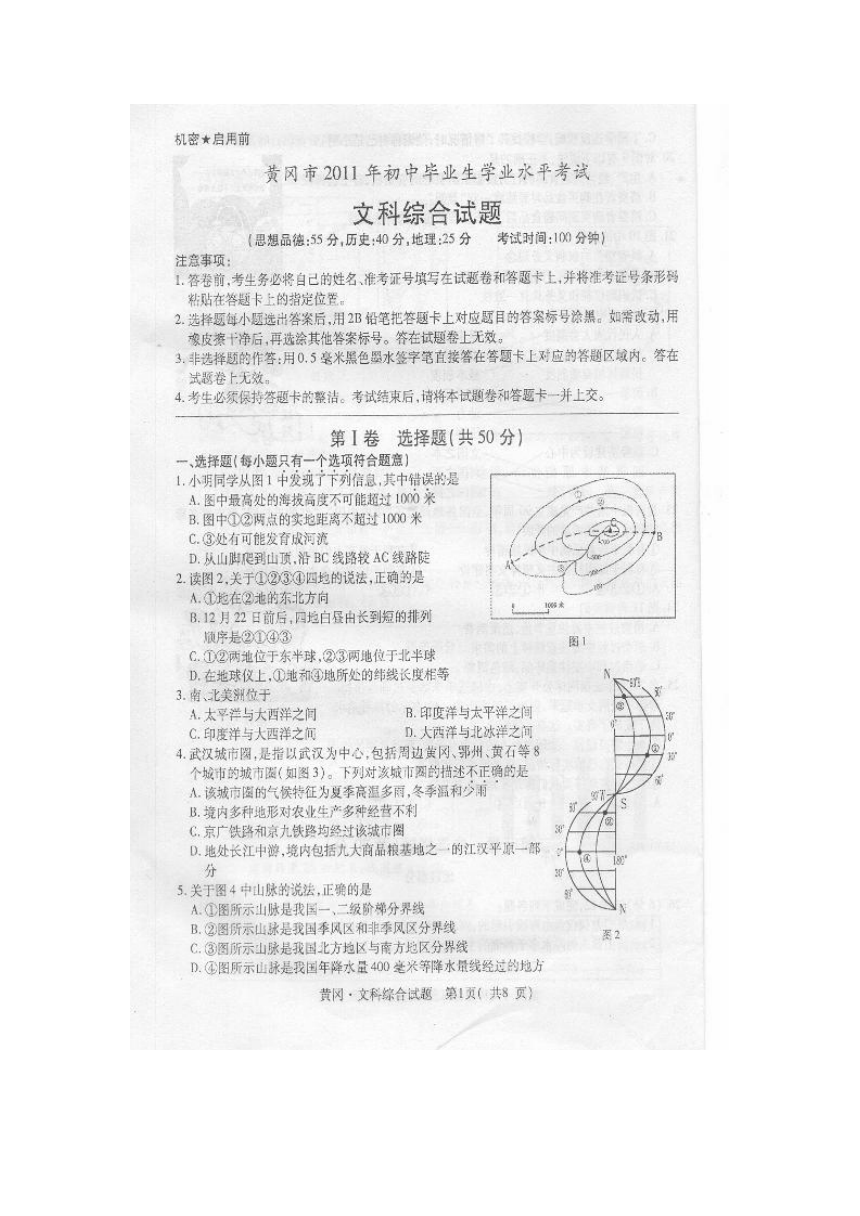 机密★启用前
黄冈市 2011 年初中毕业生学业水平考试
文科综合试题
(思想品德:55分,历史:40分,地理:25分 考试时间:100分钟)
注意事项:
1.答卷前,考生务必将自己的姓名、准考证号填写在试题卷和答题卡上,并将准考证号条形码
粘贴在答题卡上的指定位置。
2.选择题每小题选出答案后,用2B铅笔把答题卡上对应题目的答案标号涂黑。如需改动,用
橡皮擦干净后,再选涂其他答案标号。答在试题卷上无效。
3.非选择题的作答:用0.5毫米黑色墨水签字笔直接答在答题卡上对应的答题区域内。答在
试题卷上无效。
4.考生必须保持答题卡的整洁。考试结束后,请将本试题卷和答题卡一并上交。
第Ⅰ卷 选择题(共50分)
一、选择题(每小题只有一个选项符合题意)
1.小明同学从图1中发现了下列信息,其中错误的是
A.图中最高处的海拔高度不可能超过1000米
B.图中①②两点的实地距离不超过1000米
C.③处有可能发育成河流
D.从山脚爬到山顶,沿BC线路较AC线路陡
① ② C B A ③
0 1000米
图1
2.读图2,关于①②③④四地的说法,正确的是
A.①地在②地的东北方向
B.12月22日前后,四地白昼由长到短的排列
顺序是②①④③
C.①②两地位于东半球,②③两地位于北半球
D.在地球仪上,①地和④地所处的纬线长度相等
3.南、北美洲位于
A.太平洋与大西洋之间 B.印度洋与太平洋之间
C.印度洋与大西洋之间 D.大西洋与北冰洋之间
4.武汉城市圈,是指以武汉为中心,包括周边黄冈、鄂州、黄石等8
个城市的城市圈(如图3)。下列对该城市圈的描述不正确的是
A.该城市圈的气候特征为夏季高温多雨,冬季温和少雨
B.境内多种地形对农业生产多种经营不利
C.京广铁路和京九铁路均经过该城市圈
D.地处长江中游,境内包括九大商品粮基地之一的江汉平原一部
分
5.关于图4中山脉的说法,正确的是
A.①图所示山脉是我国一、二级阶梯分界线
B.②图所示山脉是我国季风区和非季风区分界线
C.③图所示山脉是我国北方地区与南方地区分界线
D.④图所示山脉是我国年降水量400毫米等降水量线经过的地方
N
30°
0°
S
30°
0°
④
180°
30°
N
图2
黄冈·文科综合试题 第1页( 共8 页)